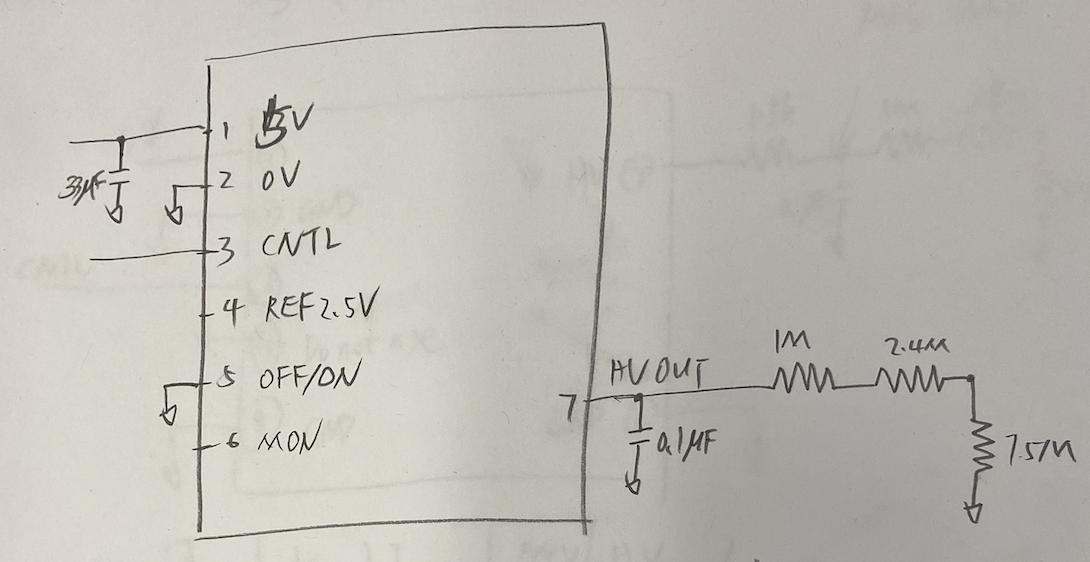 1 5V
33μF
2 0V
3 CNTL
4 REF2.5V
5 OFF/ON
6 MON
7
HV OUT
0.1μF
1M
2.4M
7.5M